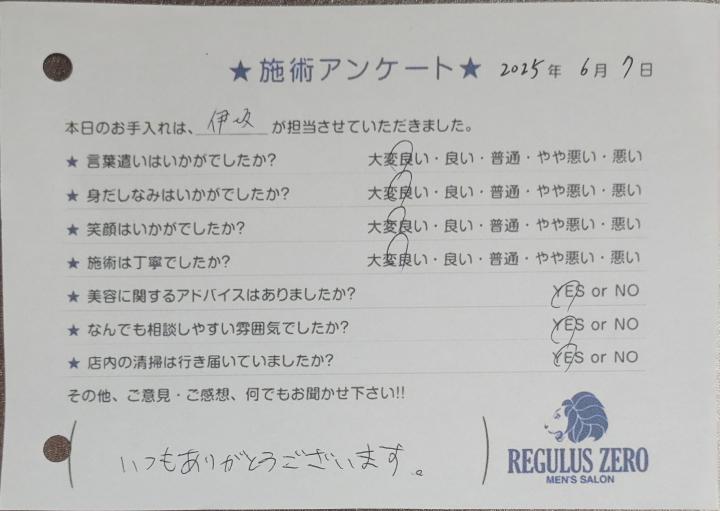 ★施術アンケート★ 2025年 6月 7日
本日のお手入れは、伊坂が担当させていただきました。
★ 言葉遣いはいかがでしたか? 大変良い・良い・普通・やや悪い・悪い
★ 身だしなみはいかがでしたか? 大変良い・良い・普通・やや悪い・悪い
★ 笑顔はいかがでしたか? 大変良い・良い・普通・やや悪い・悪い
★ 施術は丁寧でしたか? 大変良い・良い・普通・やや悪い・悪い
★ 美容に関するアドバイスはありましたか? YES or NO
★ なんでも相談しやすい雰囲気でしたか? YES or NO
★ 店内の清掃は行き届いていましたか? YES or NO
その他、ご意見・ご感想、何でもお聞かせ下さい!!
いつもありがとうございます。
REGULUS ZERO
MEN'S SALON